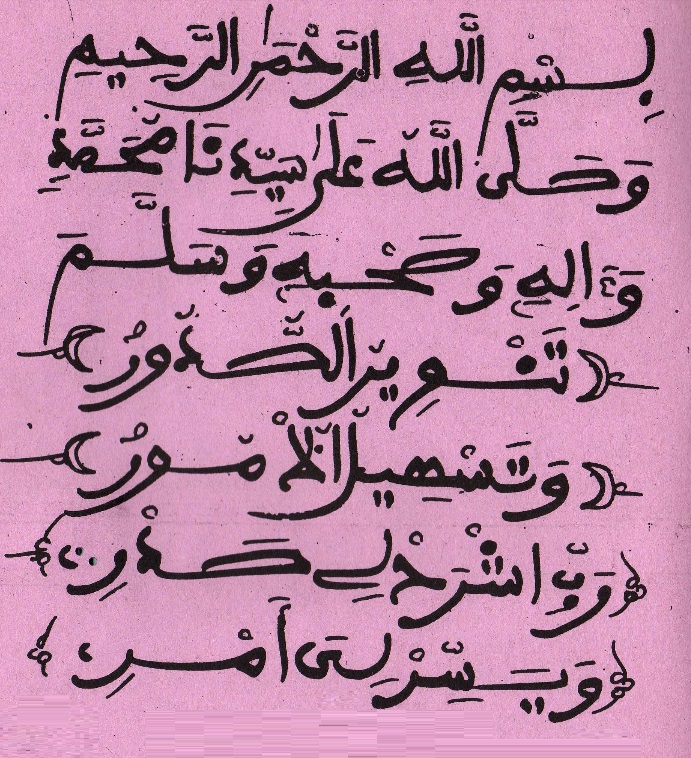 بِسْمِ اللَّهِ الرَّحْمَنِ الرَّحِيمِ
وَصَلَّى اللَّهُ عَلَى سَيِّدِنَا مُحَمَّدٍ
وَءَالِهِ وَصَحْبِهِ وَسَلَّمَ
تَنْوِيرُ الصُّدُورِ
وَتَسْهِيلُ الْأُمُورِ
رَبِّ اشْرَحْ لِي صَدْرِي
وَيَسِّرْ لِي أَمْرِي